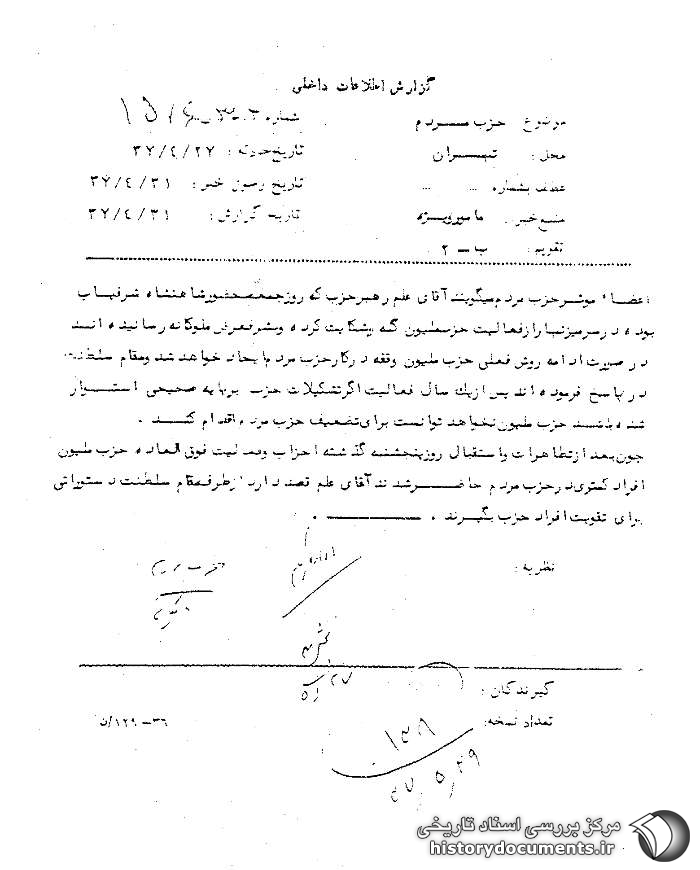 گزارش اطلاعات داخلی
موضوع : حزب مردم
شماره :
محل : تهران
تاریخ حادثه : ۳۷/۴/۲۷
عطف بشماره ... ...
تاریخ رسون خبر : ۳۷/۴/۳۱
منبع خبر : مامورویژه
تاریخ گزارش : ۳۷/۴/۳۱
تقویم : ب ـ ۲
اعضاء موثر حزب مردم میگویند آقای علم رهبر حزب که روز جمعه حضور شاهنشاه شرفیاب
بوده در سر میز از فعالیت حزب ملیون گله وشکایت کرده وبشرفعرض ملوکانه رسانیده اند
در صورت ادامه روش فعلی حزب ملیون وقفه در کار حزب مردم ایجاد خواهد شد ومقام سلطنت
در پاسخ فرموده اند پس از یک سال فعالیت اگر تشکیلات حزب بر پایه صحیحی استوار
شده باشد حزب ملیون نخواهد توانست برای تضعیف حزب مردم اقدام کند .
چون بعد از تظاهرات واستقبال روز پنجشنبه گذشته احزاب وفعالیت فوق العاده حزب ملیون
افراد کمتری در حزب مردم حاضر شدند آقای علم قصد دارد از طرف مقام سلطنت دستوراتی
برای تقویت افراد حزب بگیرند .
نظریه :
حزب مردم
گیرندگان :
۲۷
تعداد نسخه :
۳۶ـ۱۲۹/ن
۱۳۸
۳۷٫۵٫۲۹
مرکز بررسی اسناد تاریخی
historydocuments.ir